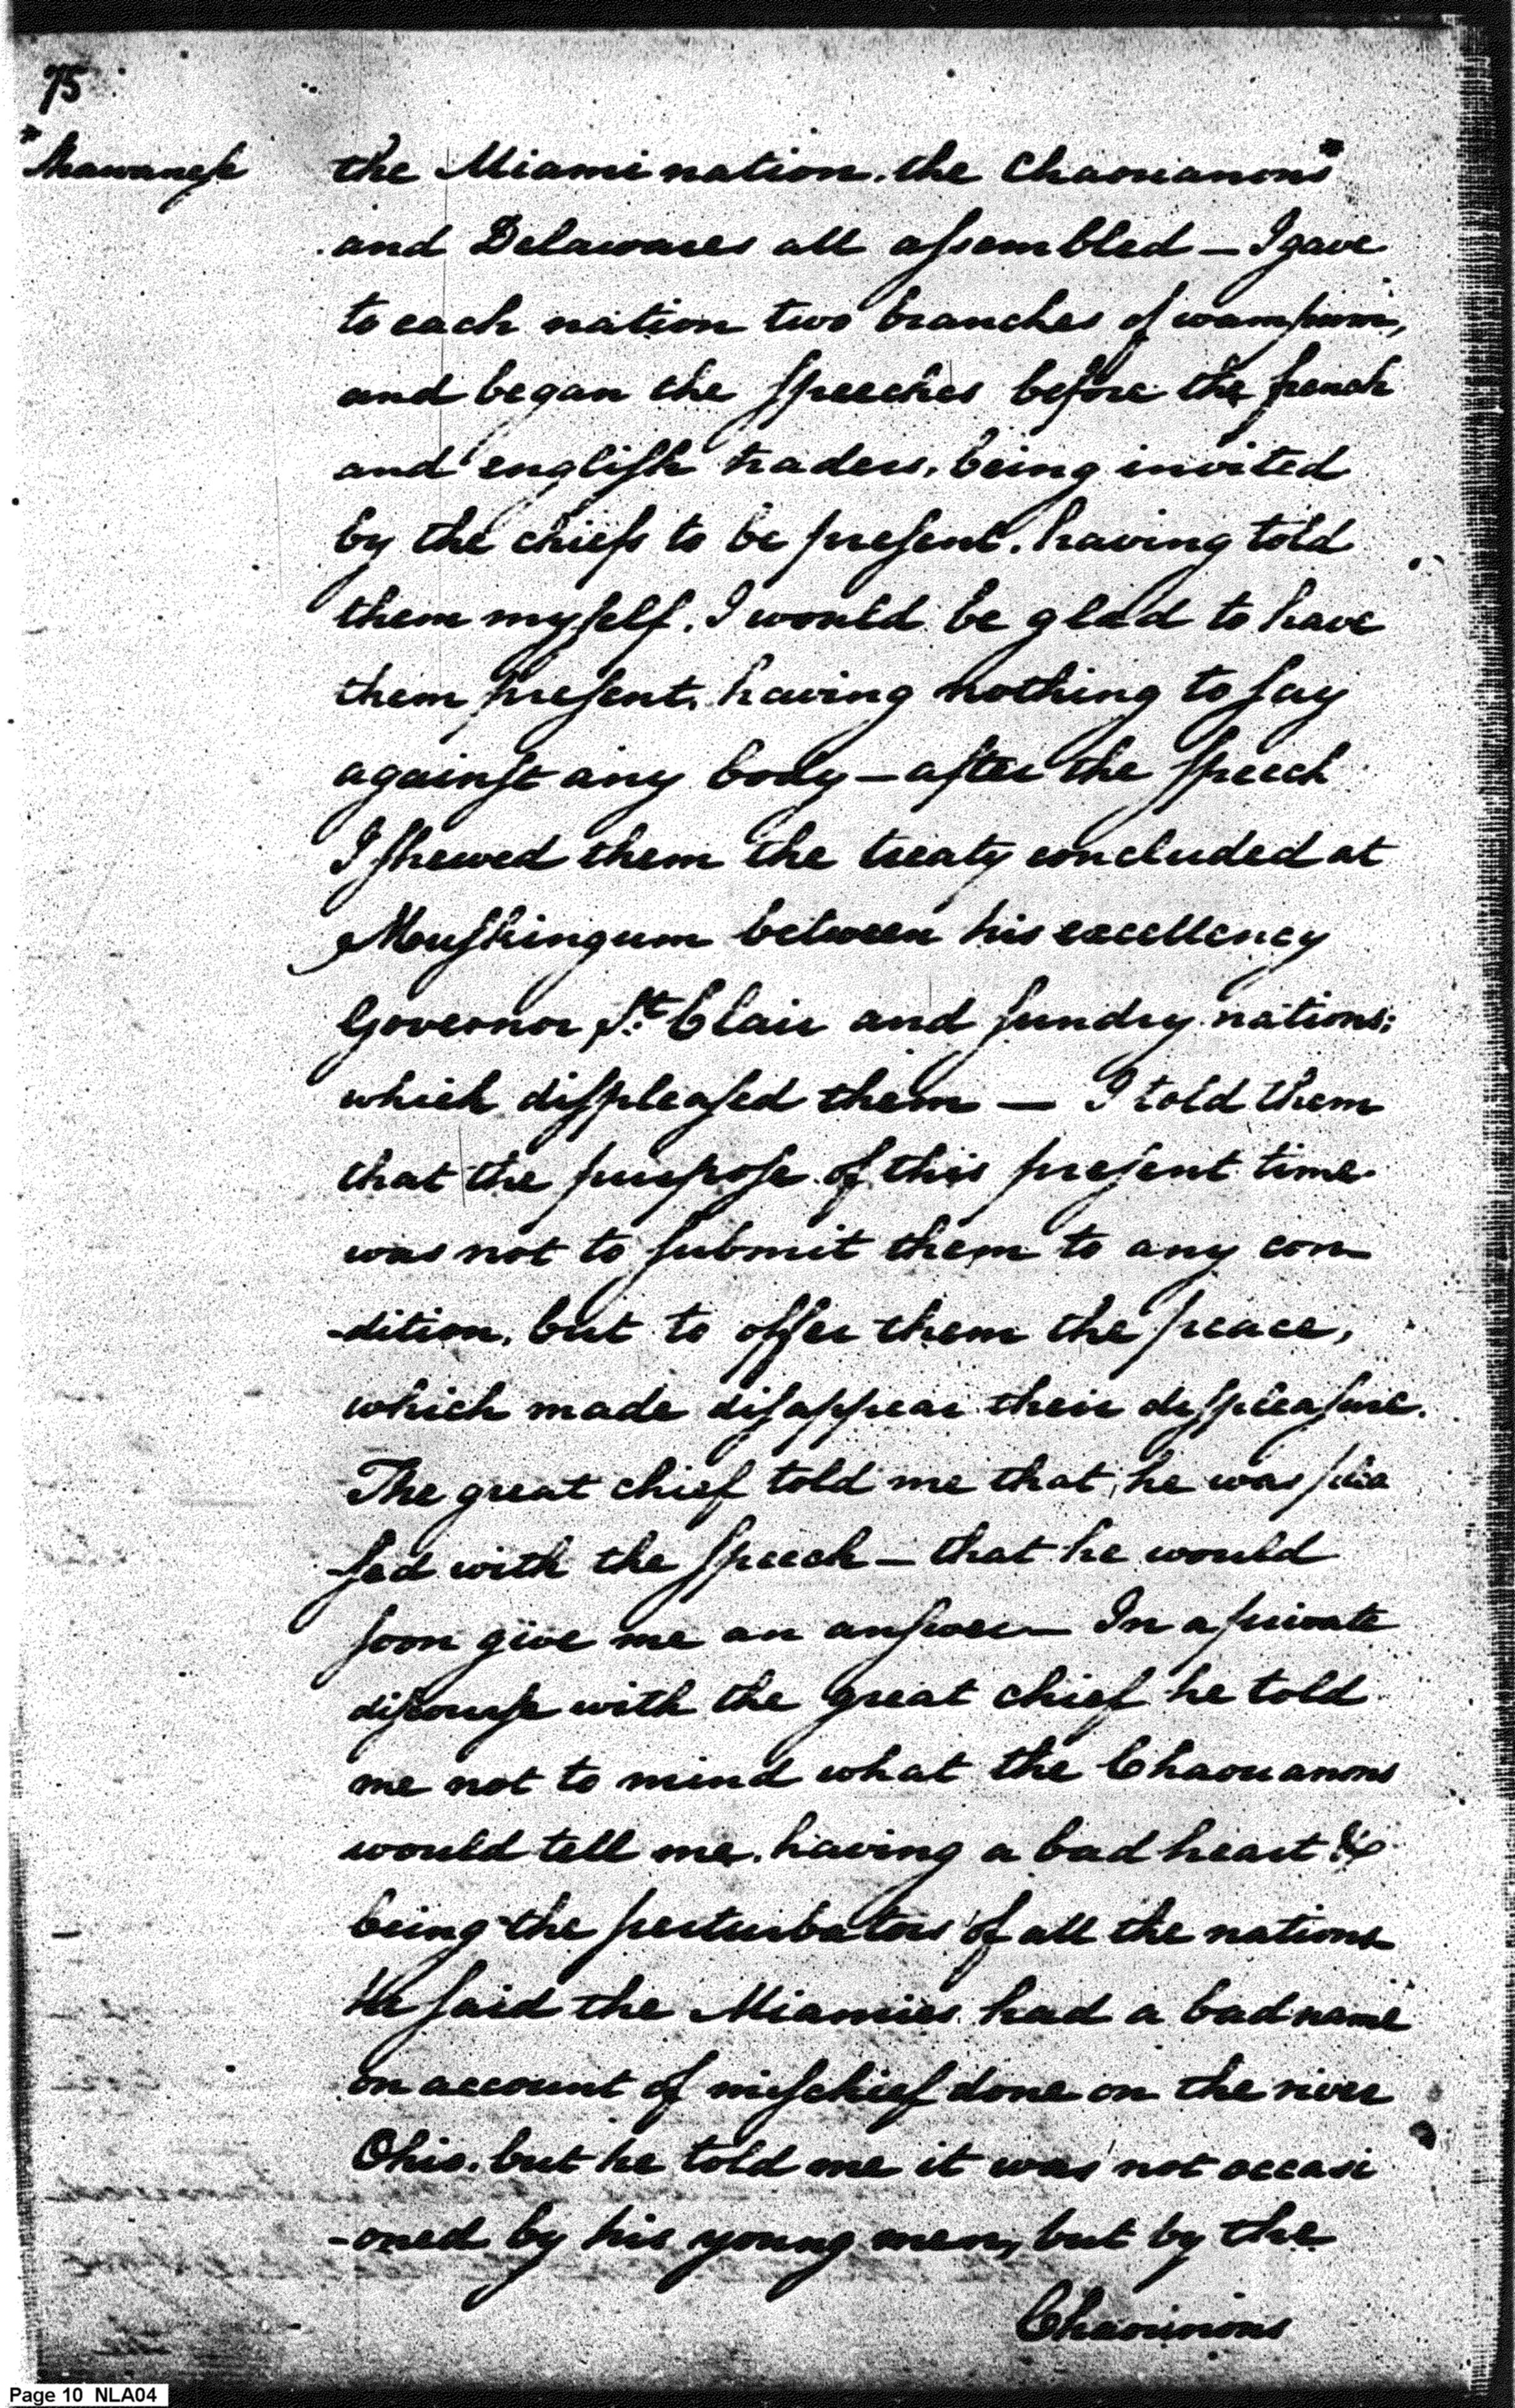 75
*Shawanese
the Miami nation, the Chaouanons*
and Delawares all assembled – I gave
to each nation two branches of wampum,
and began the speeches before the french
and english traders, being invited
by the chiefs to be present, having told
them myself, I would be glad to have
them present, having nothing to say
against any body – after the speech
I shewed them the treaty concluded at
Muskingum between his excellency
Governor St. Clair and sundry nations;
which displeased them — I told them
that the purpose of this present time
was not to submit them to any con
-dition, but to offer them the peace,
which made disappear their displeasure.
The great chief told me that he was plea
-sed with the speech – that he would
soon give me an answer – In a private
discourse with the great chief he told
me not to mind what the Chaouanons
would tell me, having a bad heart &
being the perturbators of all the nations
He said the Miamies had a bad name
on account of mischief done on the river
Ohio, but he told me it was not occasi
-oned by his young men, but by the
Chaouanons
Page 10 NLA04